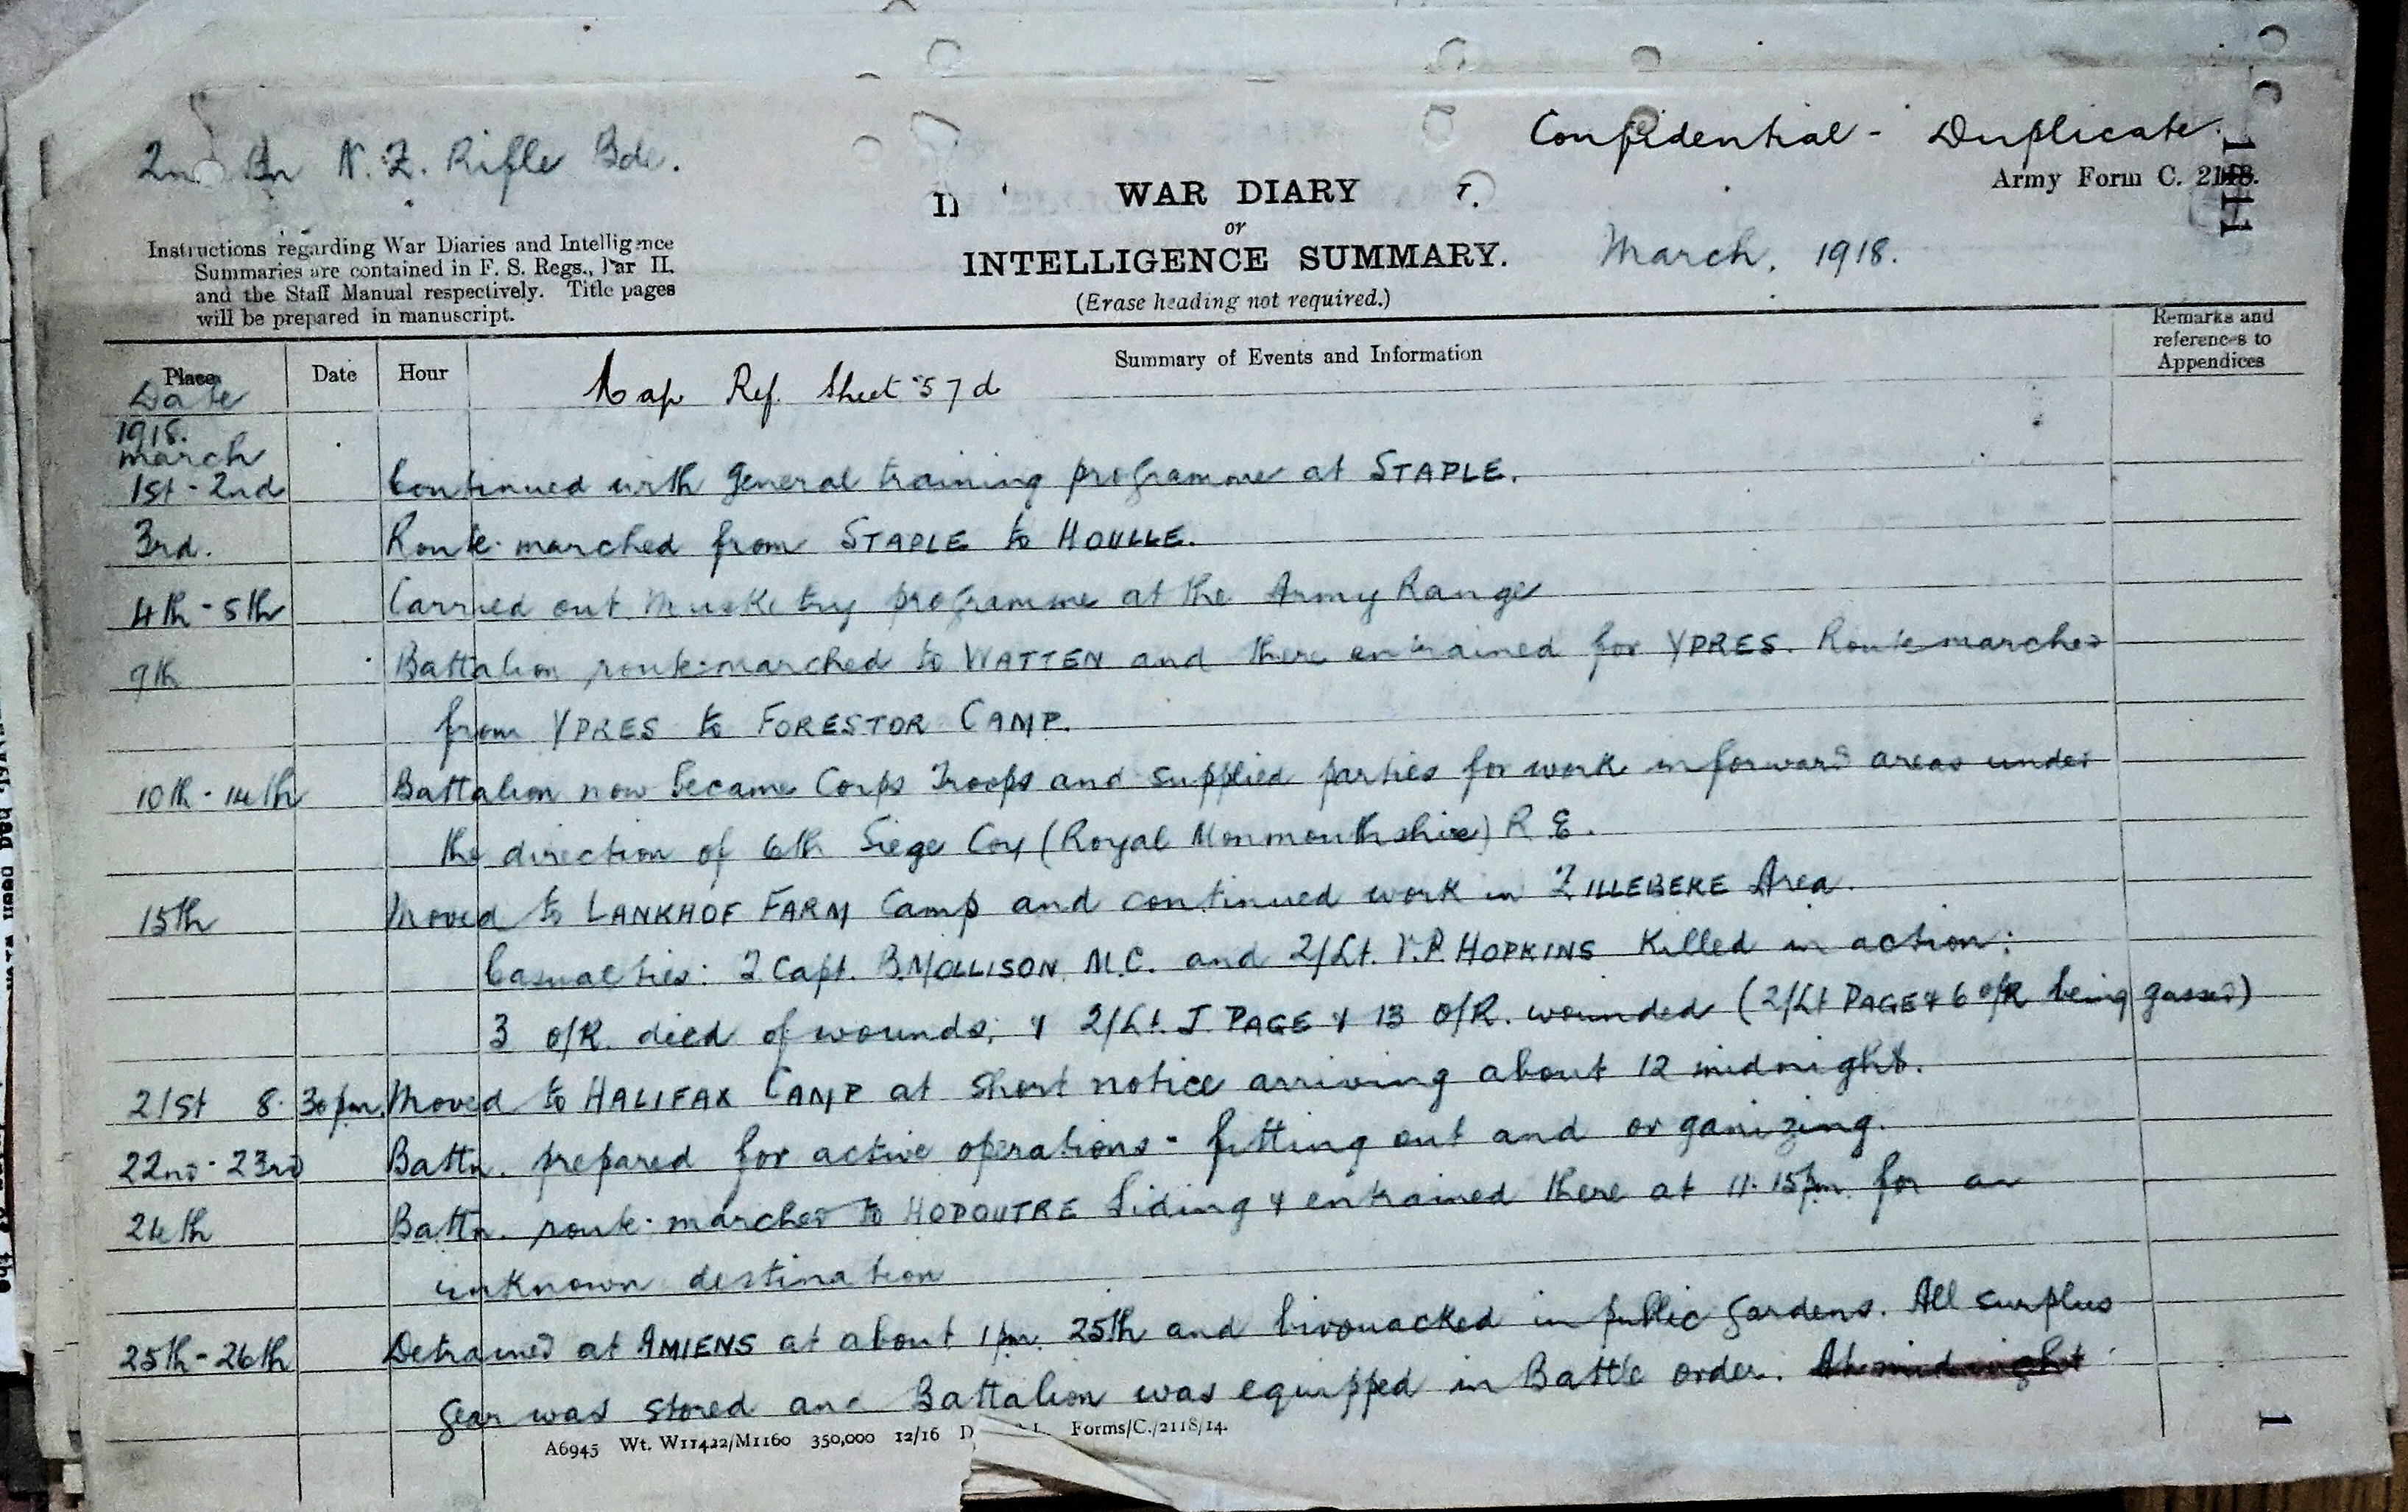 2nd Bn N.Z. Rifle Bde.
Confidential - Duplicate.
Army Form C. 2118.
WAR DIARY
or
INTELLIGENCE SUMMARY.
(Erase heading not required.)
March, 1918.
Instructions regarding War Diaries and Intelligence
Summaries are contained in F. S. Regs., Par II.
and the Staff Manual respectively. Title pages
will be prepared in manuscript.
Place Date Hour Summary of Events and Information Remarks and references to Appendices
Date
Map Ref. Sheet 57d
1918.
March
1st - 2nd Continued with general training programme at STAPLE.
3rd. Route marched from STAPLE to HOULLE.
4th - 5th Carried out Musketry programme at the Army Range
9th Battalion route-marched to WATTEN and there entrained for YPRES. Route marched
from YPRES to FORESTOR CAMP.
10th - 14th Battalion now became Corps Troops and supplied parties for work in forward areas under
the direction of 6th Siege Coy (Royal Monmouthshire) R.E.
15th Moved to LANKHOF FARM Camp and continued work in ZILLEBEKE Area.
Casualties: Capt. B. MOLLISON M.C. and 2/Lt. P. HOPKINS Killed in action;
3 O/R. died of wounds; & 2/Lt. J. PAGE & 13 O/R. wounded (2/Lt PAGE & 6 O/R being gassed)
21st 8.30pm. Moved to HALIFAX CAMP at short notice arriving about 12 midnight.
22nd - 23rd Battn. prepared for active operations - fitting out and organizing.
24th Battn. route-marched to HOPOUTRE Siding & entrained there at 11.15pm for an
unknown destination
25th - 26th Detrained at AMIENS at about 1pm. 25th and bivouacked in public gardens. All surplus
gear was stored and Battalion was equipped in Battle order. At midnight
A6945 Wt. W11422/M1160 350,000 12/16 Forms/C./2118/14.